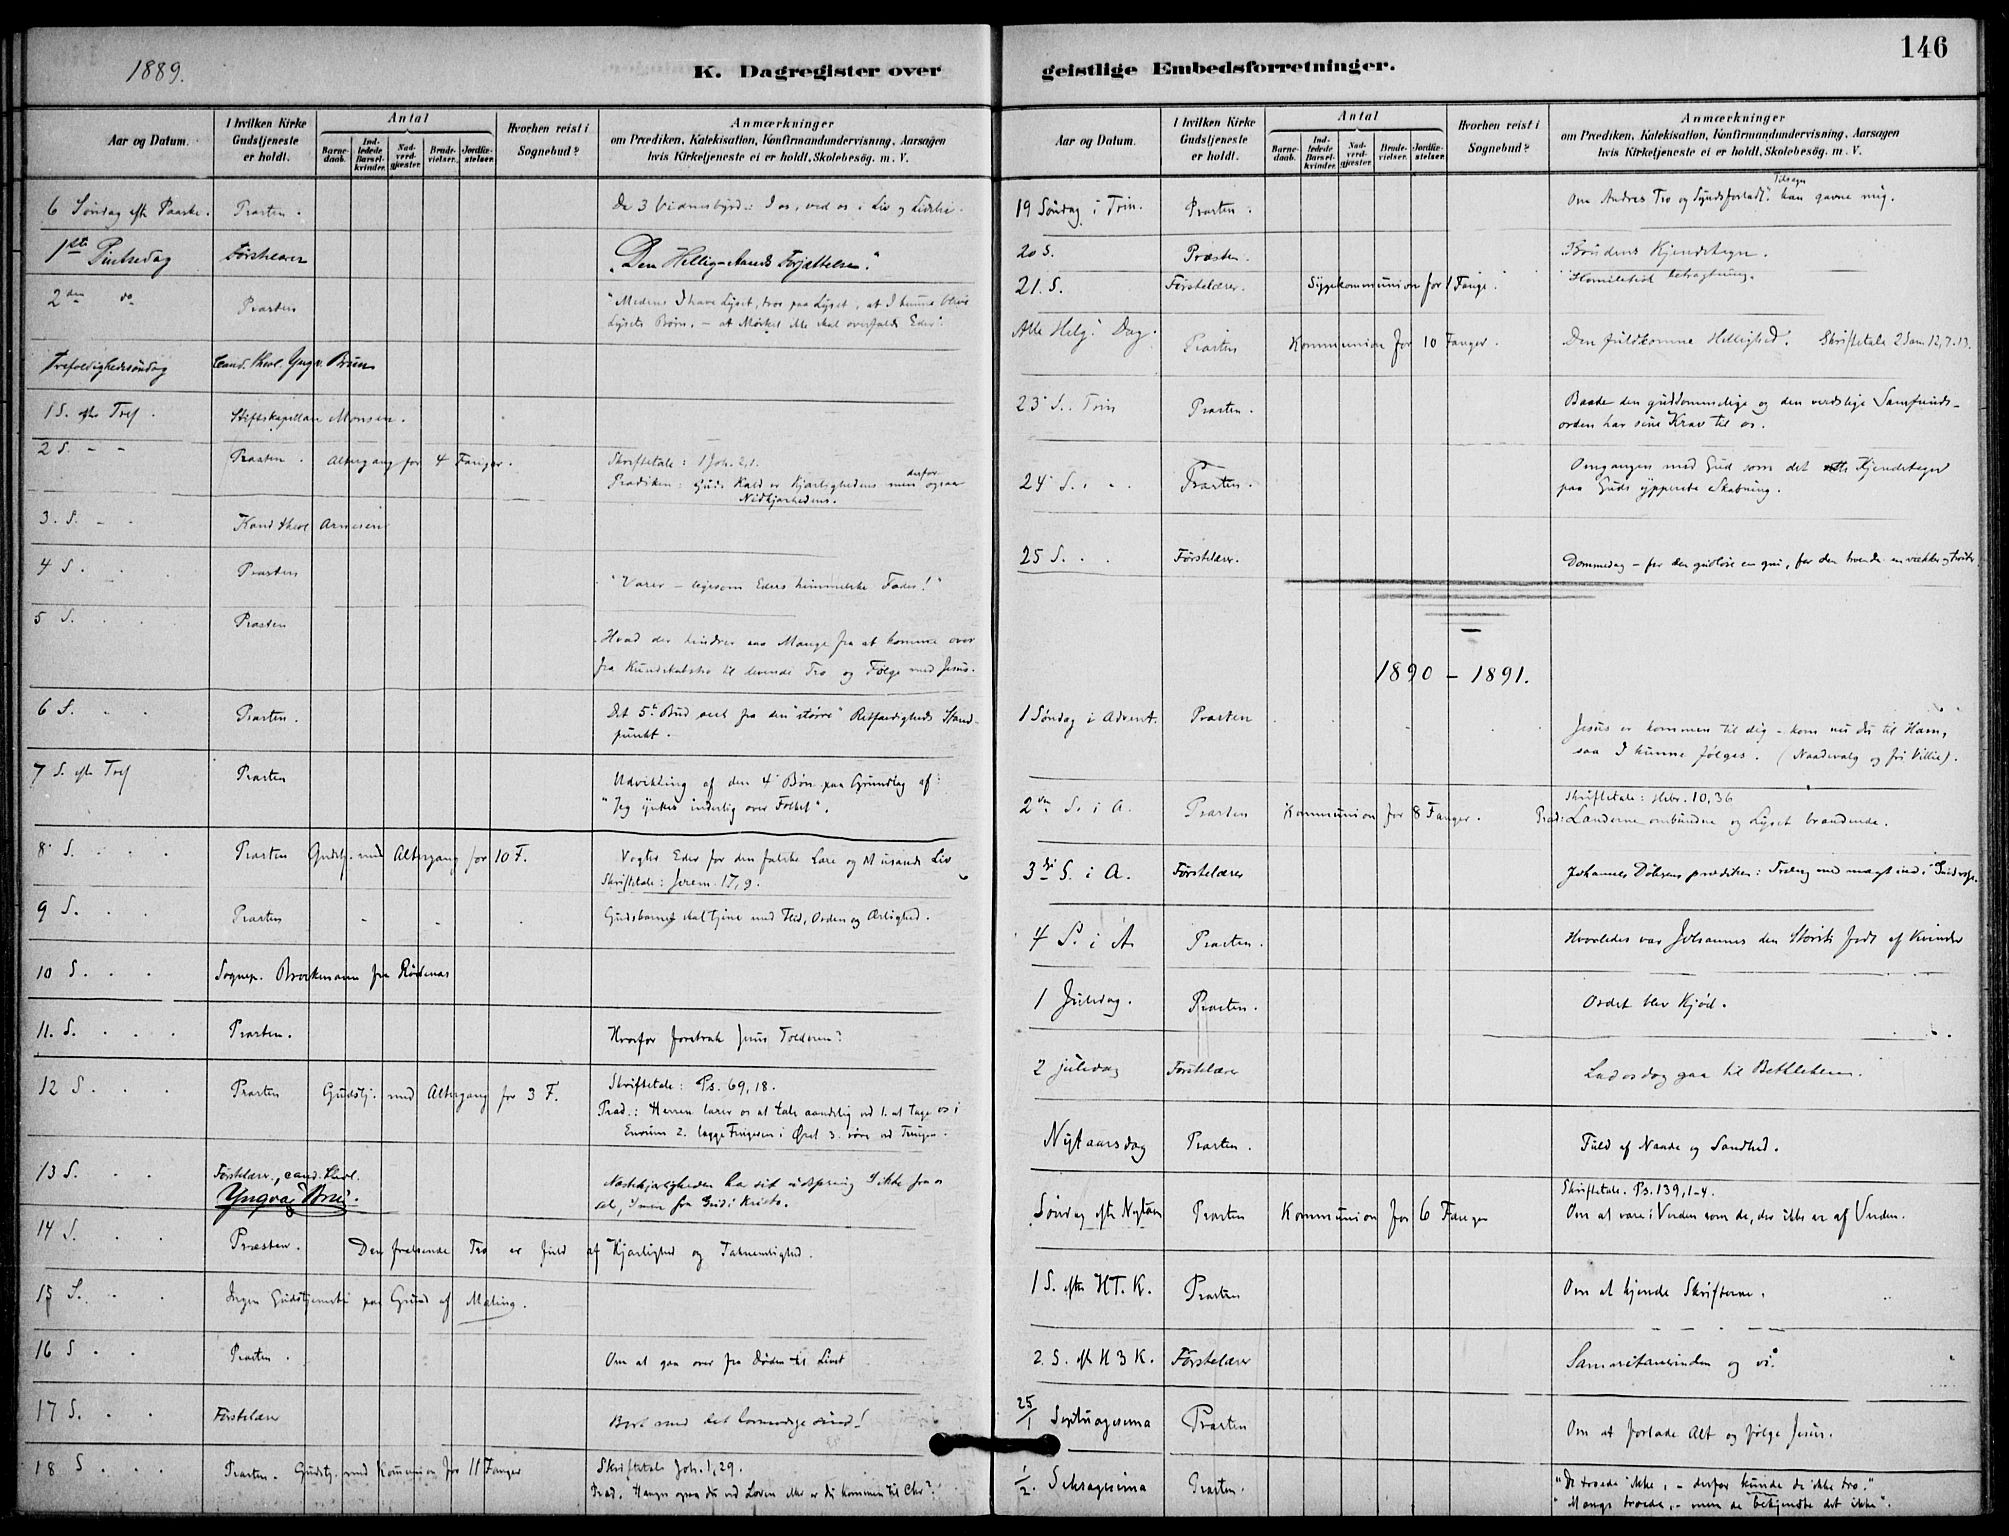 1889.
K. Dagregister over
Aar og Datum.
I hvilken Kirke Gudstjeneste er holdt.
Antal
Barnedaab.
Indledede Barselkvinder.
Nadverdgjæster.
Brudevielser.
Jordfæstelser.
Hvorhen reist i Sognebud?
Anmærkninger
om Prædiken, Katekisation, Konfirmandundervisning, Aarsagen
hvis Kirketjeneste ei er holdt, Skolebesög. m. V.
6 Søndag efter Paaske. Præsten. De 3 Vidnesbyrd: I os, ved os i Liv og Lidelse.
1ste Pintsedag Førstelærer "Den Hellig-Aands Forjættelse."
2den do Præsten "Medens I have Lyset, tro paa Lyset, at I kunne blive
Lysets Børn. – at Mørket ikke skal overfalde Eder".
Trefoldighedssøndag Cand. theol. Yngv. Brun
1 S. efter Tref. Stiftskapellan Monsen.
2 S. - - Præsten. Altergang for 4 Fanger. Skriftetale: 1 Joh. 2,1.
Prædiken: Guds Kald er Kjærlighedens men derfor ogsaa
Nidkjærhedens.
3. S. - - Kand theol Arnesen
4 S. Præsten "Værer – ligesom Eders himmelske Fader!"
5 S. Præsten
Hvad der hindrer saa Mange fra at komme over
fra Kundskabstro til levende Tro og Følge med Jesus.
6 S. Præsten. Det 5te Bud seet fra den "større" Retfærdigheds Stand-
punkt.
7 S. efter Tref Præsten Udvikling af den 4 Bøn paa Grundlag af:
"Jeg ynkes inderlig over Folket".
8 S. Præsten Gudstj. med Altergang for 10 F. Vogter Eder for den falske Lære og usande Liv
Skriftetale: Jerem. 17,9.
9 S. Præsten Gudsbarnet skal tjene med Flid, Orden og Ærlighed.
10 S. Sognep. Brockmann fra Rødenæs
11. S. Præsten. Hvorfor foretrak Jesus Tolderen?
12 S. Præsten Gudstj. med Altergang for 3 F. Skriftetale: Ps. 69,18.
Præd.: Herren lærer os at tale aandelig ved 1. at tage os i
Enrum 2. lægge Fingeren i Øret 3. røre ved Tungen.
13 S. Førstelærer, cand. theol.
Yngvar Brun. Næstekjærligheden har sit udspring ikke fra os
sel, men fra Gud i Kristo.
14 S. Præsten. Den frelsende Tro er fuld af Kjærlighed og Taknemlighed.
15 S. Ingen Gudstjeneste paa Grund af Maling.
16 S Præsten. Om at gaa over fra Døden til Livet
17 S. Førstelærer Bort med det bornerede sind!
18 S Præsten. Gudstj. med Kommunion for 11 Fanger Skriftetale Joh. 1,29.
Præd. Hænger ogsaa du ved Loven eller er du kommen til Chr?
146
geistlige Embedsforretninger.
Aar og Datum.
I hvilken Kirke Gudstjeneste er holdt.
Antal
Barnedaab.
Indledede Barselkvinder.
Nadverdgjæster.
Brudevielser.
Jordfæstelser.
Hvorhen reist i Sognebud?
Anmærkninger
om Prædiken, Katekisation, Konfirmandundervisning, Aarsagen
hvis Kirketjeneste ei er holdt, Skolebesög. m. V.
19 Søndag i Trin. Præsten. Om Andres Tro og Syndsforlad. Tilsagn kan gavne mig.
20 S. Præsten. Brudens Kjendetegn.
21. S. Førstelærer. Sygekommunion for 1 Fange. Homiletisk betragtning.
Alle Helg. Dag. Præsten Kommunion for 10 Fanger. Den fuldkomne Hellighed. Skriftetale 2 Sam. 12,7-13.
23 S. Trin Præsten. Baade den guddommelige og den verdslige Samfunds-
orden har sine Krav til os.
24 S. Præsten. Omgangen med Gud som det Kjendetegn
paa Guds ypperste Skabning.
25 S. Førstelærer. Dommedag – for den gudløse en gru, for den troende en
1890 – 1891.
1 Søndag i Advent. Præsten Jesus er kommen til dig – kom nu du til Ham,
saa I kunne følges. (Naadevalg og fri Villie).
2den S. i A. Præsten Kommunion for 8 Fanger. Skriftetale: Hebr. 10,36
Præd: Lænderne ombundne og Lyset brændende.
3die S. i A. Førstelærer Johannes Døberens prædiken: Træng med magt ind i Gudsr.
4 S. i A Præsten. Hvorledes var Johannes den Største født af Kvinder
1 Juledag. Præsten. Ordet blev Kjød.
2 juledag Førstelærer Lad os dog gaa til Bethlehem.
Nytaarsdag Præsten. Fuld af Naade og Sandhed.
Søndag efter Nytaar Præsten Kommunion for 6 Fanger Skriftetale. Ps. 139,1-4.
Om at være i Verden som de, der ikke er af Verden.
1 S. efter H.T.K. Præsten Om at kjende Skrifterne.
2. S. eft H 3 K. Førstelærer Samaritanerinden og vi.
25/1 Septuagesima Præsten Om at forlade Alt og følge Jesus.
1/2. Seksagesima Præsten. "De troede ikke, – derfor kunde de ikke tro."
"Mange troede, – men de bekjendte det ikke".